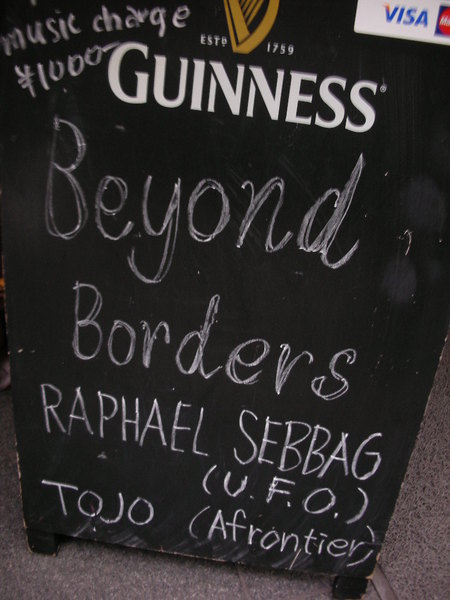 music charge
¥1000-
ESTD 1759
GUINNESS®
VISA
Beyond
Borders
RAPHAEL SEBBAG
(U.F.O.)
TOJO (Afrontier)